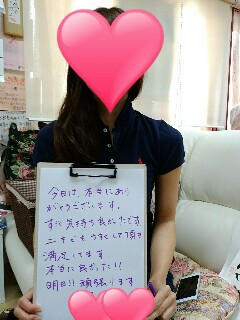 今日は、本当にあり
がとうございます。
すごく気持ち良かったです
ニキビもうすくして頂き
満足してます
本当に良かった!!
明日!! 頑張ります